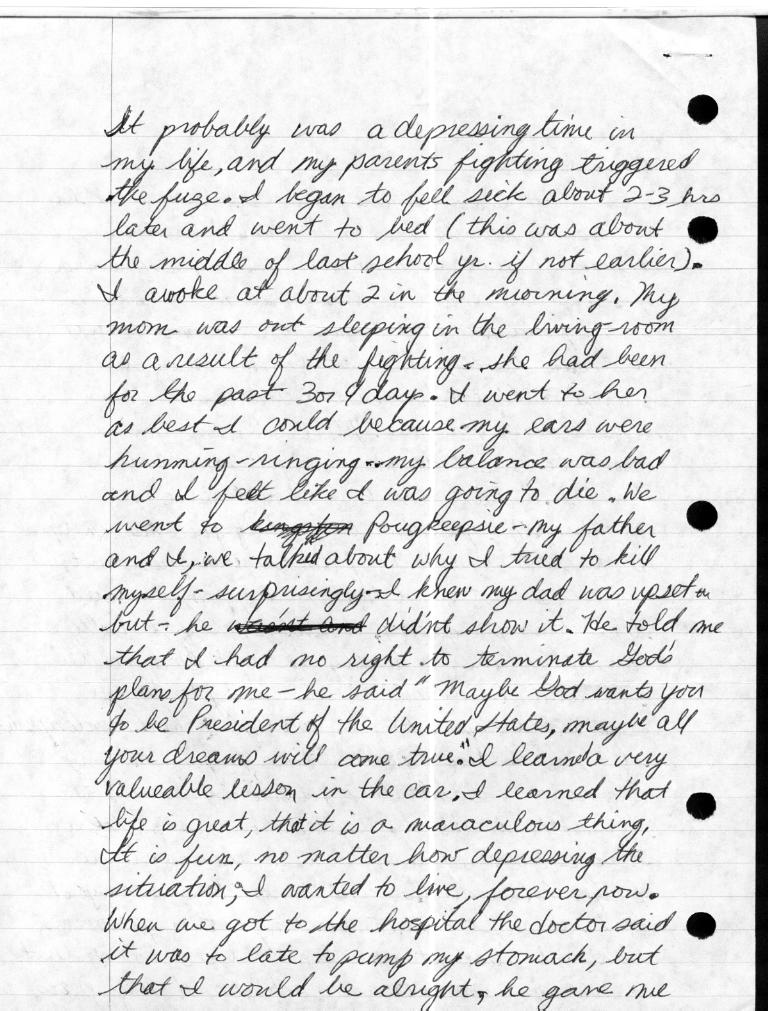 It probably was a depressing time in
my life, and my parents fighting triggered
the fuze. I began to fell sick about 2-3 hrs
later and went to bed (this was about
the middle of last school yr. if not earlier).
I awoke at about 2 in the morning. My
mom was out sleeping in the living-room
as a result of the fighting. she had been
for the past 3 or 4 days. I went to her
as best I could because my ears were
humming-ringing.. my balance was bad
and I felt like I was going to die. We
went to kingston Pougkeepsie - my father
and I, we talked about why I tried to kill
myself - surprisingly - I knew my dad was upset
but - he wasnt and didn't show it. He told me
that I had no right to terminate God's
plans for me - he said "Maybe God wants you
to be President of the United States, maybe all
your dreams will come true." I learned a very
valueable lesson in the car. I learned that
life is great, that it is a maraculous thing.
It is fun, no matter how depressing the
situation; I wanted to live, forever now.
When we got to the hospital the doctor said
it was to late to pump my stomach, but
that I would be alright, he gave me